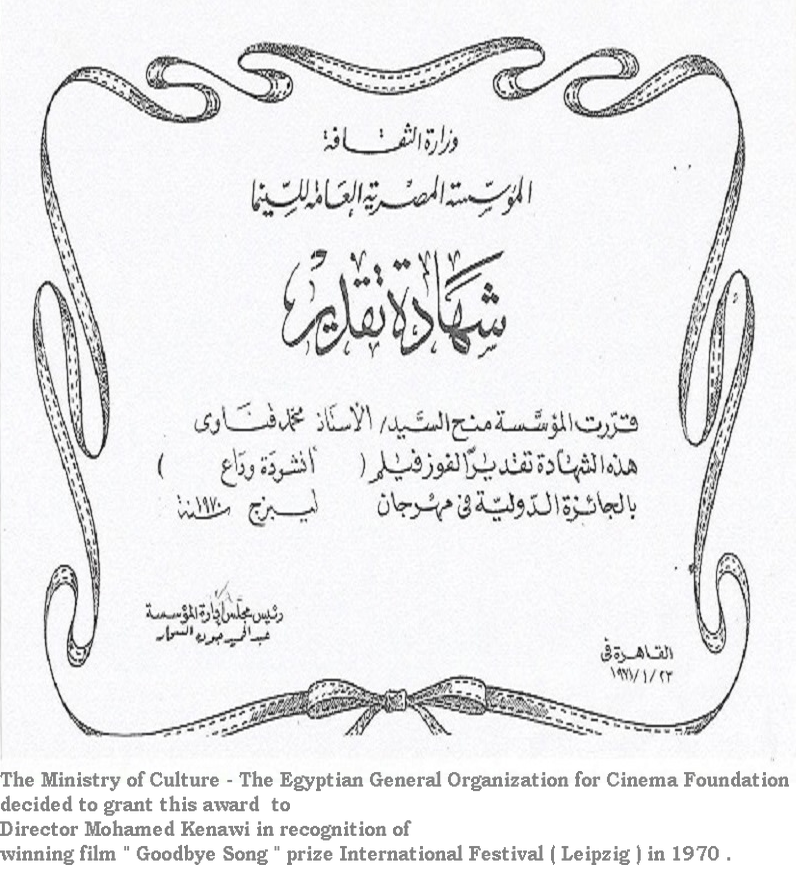 وزارة الثقافة
المؤسسة المصرية العامة للسينما
شهادة تقدير
قررت المؤسسة منح السيد/ الأستاذ محمد قناوى
هذه الشهادة تقديرًا لفوز فيلم ( أنشودة وداع )
بالجائزة الدولية فى مهرجان ليبزج سنة ١٩٧٠
رئيس مجلس إدارة المؤسسة
عبد الحميد جودة السحار
القاهرة فى
٢٣ / ١ / ١٩٧١
The Ministry of Culture - The Egyptian General Organization for Cinema Foundation
decided to grant this award to
Director Mohamed Kenawi in recognition of
winning film " Goodbye Song " prize International Festival ( Leipzig ) in 1970 .